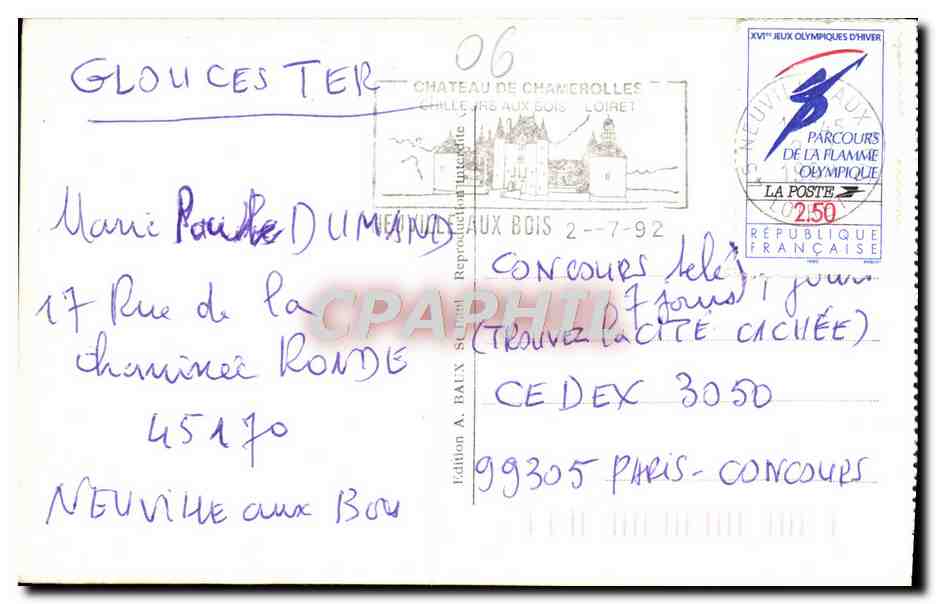 06
GLOUCESTER
CHATEAU DE CHAMEROLLES
CHILLEURS AUX BOIS LOIRET
NEUVILLE AUX BOIS 2--7-92
XVIes JEUX OLYMPIQUES D'HIVER
PARCOURS
DE LA FLAMME
OLYMPIQUE
LA POSTE
2,50
RÉPUBLIQUE
FRANÇAISE
Marie Paule DUMAND
17 Rue de la
cheminée RONDE
45170
NEUVILLE aux Bois
Edition A. BAUX St. Paul Reproduction Interdite
CONCOURS télé 7 jours
7 jours
(TROUVEZ la CITÉ CACHÉE)
CEDEX 3050
99305 PARIS - CONCOURS
CPAPHIL